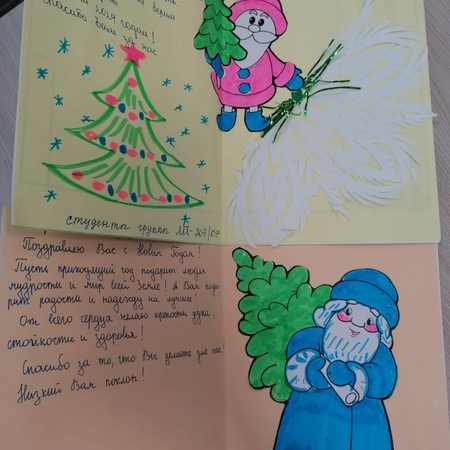 верим
спасибо Вам за нас
студенты группы МТ-207/КФ
Поздравляю Вас с Новым Годом!
Пусть приходящий год подарит людям
мудрости и мир всей Земле! А Вам пода-
рит радости и надежду на лучшее!
От всего сердца желаю крепости духа,
стойкости и здоровья!
Спасибо за то, что Вы делаете для нас!
Низкий Вам поклон!